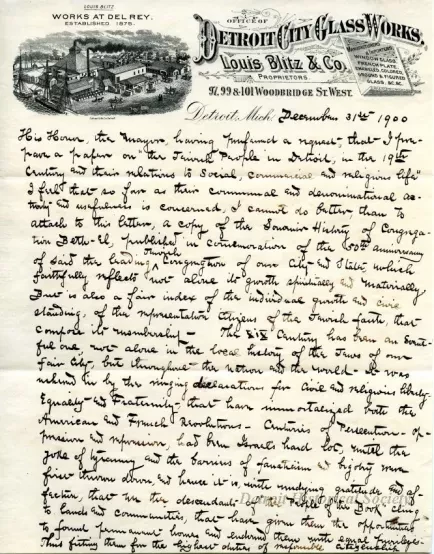 LOUIS BLITZ
WORKS AT DEL REY.
ESTABLISHED 1875.
OFFICE OF
DETROIT CITY GLASS WORKS.
Louis Blitz & Co.
PROPRIETORS
97, 99 & 101 WOODBRIDGE ST. WEST.
WINDOW GLASS,
FRENCH PLATE,
ENAMELED, COLORED,
GROUND & FIGURED
GLASS, &C. &C.
Detroit, Mich. December 31st 1900
His Honor, the Mayor, having preferred a request, that I pre-
pare a paper on "the Jewish People in Detroit, in the 19th
Century and their relations to Social, commercial and religious life"
I feel that so far as their communal and denominational ac-
tivity and usefulness is concerned, I cannot do better than to
attach to this letter, a copy of the Souvenir History of Congrega-
tion Beth-El, published in commemoration of the 50th anniversary
of said the leading Jewish Congregation of our City and State, which
faithfully reflects not alone its growth spiritually and materially
But is also a fair index of the individual growth and civic
standing, of the representative citizens of the Jewish faith, that
compose its membership — The XIX Century has been an event-
ful one not alone in the local history of the Jews of our
Fair City, but throughout the nation and the world — It was
ushered in by the ringing declarations for Civil and religious liberty
Equality and Fraternity that have immortalized both the
American and French Revolutions — Centuries of Persecution — op-
pression and repression, had been Israels hard lot, until the
yoke of tyranny and the barriers of fanaticism and bigotry were
first thrown down, and hence it is, with undying gratitude and af-
fection, that we the descendants of the People of the Book cling
to lands and communities, that have given them the opportunities
to found permanent homes and endowed them with equal privileges
Thus fitting them for the highest duties of responsible citizenship
Detroit Historical Society